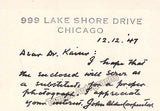 999 LAKE SHORE DRIVE
CHICAGO
12.12.47
Dear Dr. Kaiser: I hope that
the enclosed will serve as
a substitute for a proper
photograph. I appreciate
your interest, John Alden Carpenter